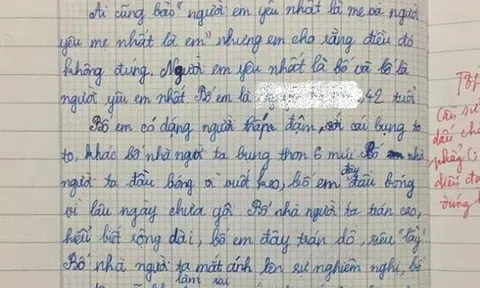 Ai cũng bảo "người em yêu nhất là mẹ và người
yêu mẹ nhất là em" nhưng em cho rằng điều đó
không đúng. Người em yêu nhất là bố và bố là
người yêu em nhất Bố em là 42 tuổi
Bố em có dáng người đậm, với cái bụng to
to, khác bố nhà người ta bụng thon 6 múi. Bố nhà
người ta đầu bóng vì vuốt keo, bố em đây đầu bóng
vì lâu ngày chưa gội. Bố nhà người ta trán cao,
hiểu biết rộng dài, bố em đây trán dô, siêu "lầy"
Bố nhà người ta mắt ánh lên sự nghiêm nghị, bố
làm sai
Cần sử
dấu
phẩy